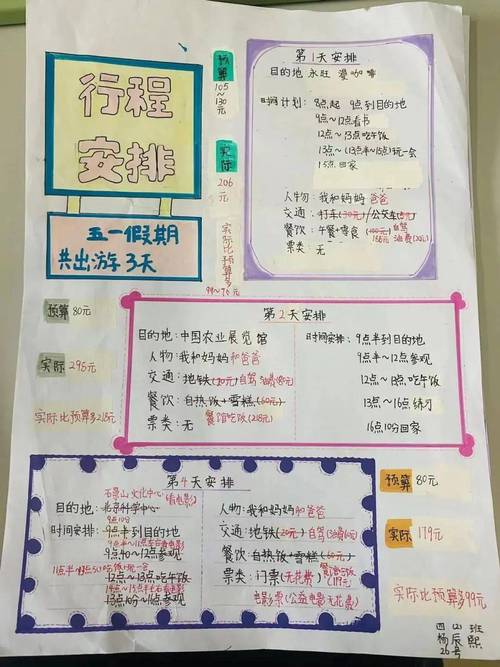 行程
安排
五一假期
共出游3天
预算
105
~
130
元
实际
206
元
实际比预算多
第1天安排
目的地 永旺 漫咖啡
时间计划: 8点起 9点到目的地
9点~12点看书
12点~13点吃午饭
13点~(13点半~15点)玩一会
15点回家
人物: 我和妈妈爸爸
交通: 打车(30元)/公交车
自驾
餐饮: 午餐+零食(100元)
186元 油费(20元)
票类: 无
预算 80元
实际
295元
实际比预算多215元
第2天安排
目的地: 中国农业展览馆
人物: 我和妈妈和爸爸
交通: 地铁(20元)自驾 油费
餐饮: 自热饭+雪糕(60元)
餐馆吃饭(215元)
票类: 无
时间安排: 9点半到目的地
9点半~12点参观
12点~13点吃午饭
13点~16点练习
16点10分回家
第4天安排
石景山文化中心(看电影)
目的地: 北京科学中心
9点10分
时间安排: 9点半到目的地
9点40~12点参观
12点~13点吃午饭
13点10分~16点参观
人物: 我和妈妈和爸爸
交通: 地铁(20元)自驾
餐饮: 自热饭+雪糕(60元)
票类: 门票(无花费)
电影票(公益电影无花费)
预算 80元
实际 179元
实际比预算多99元
四(4)班
杨辰熙
26号